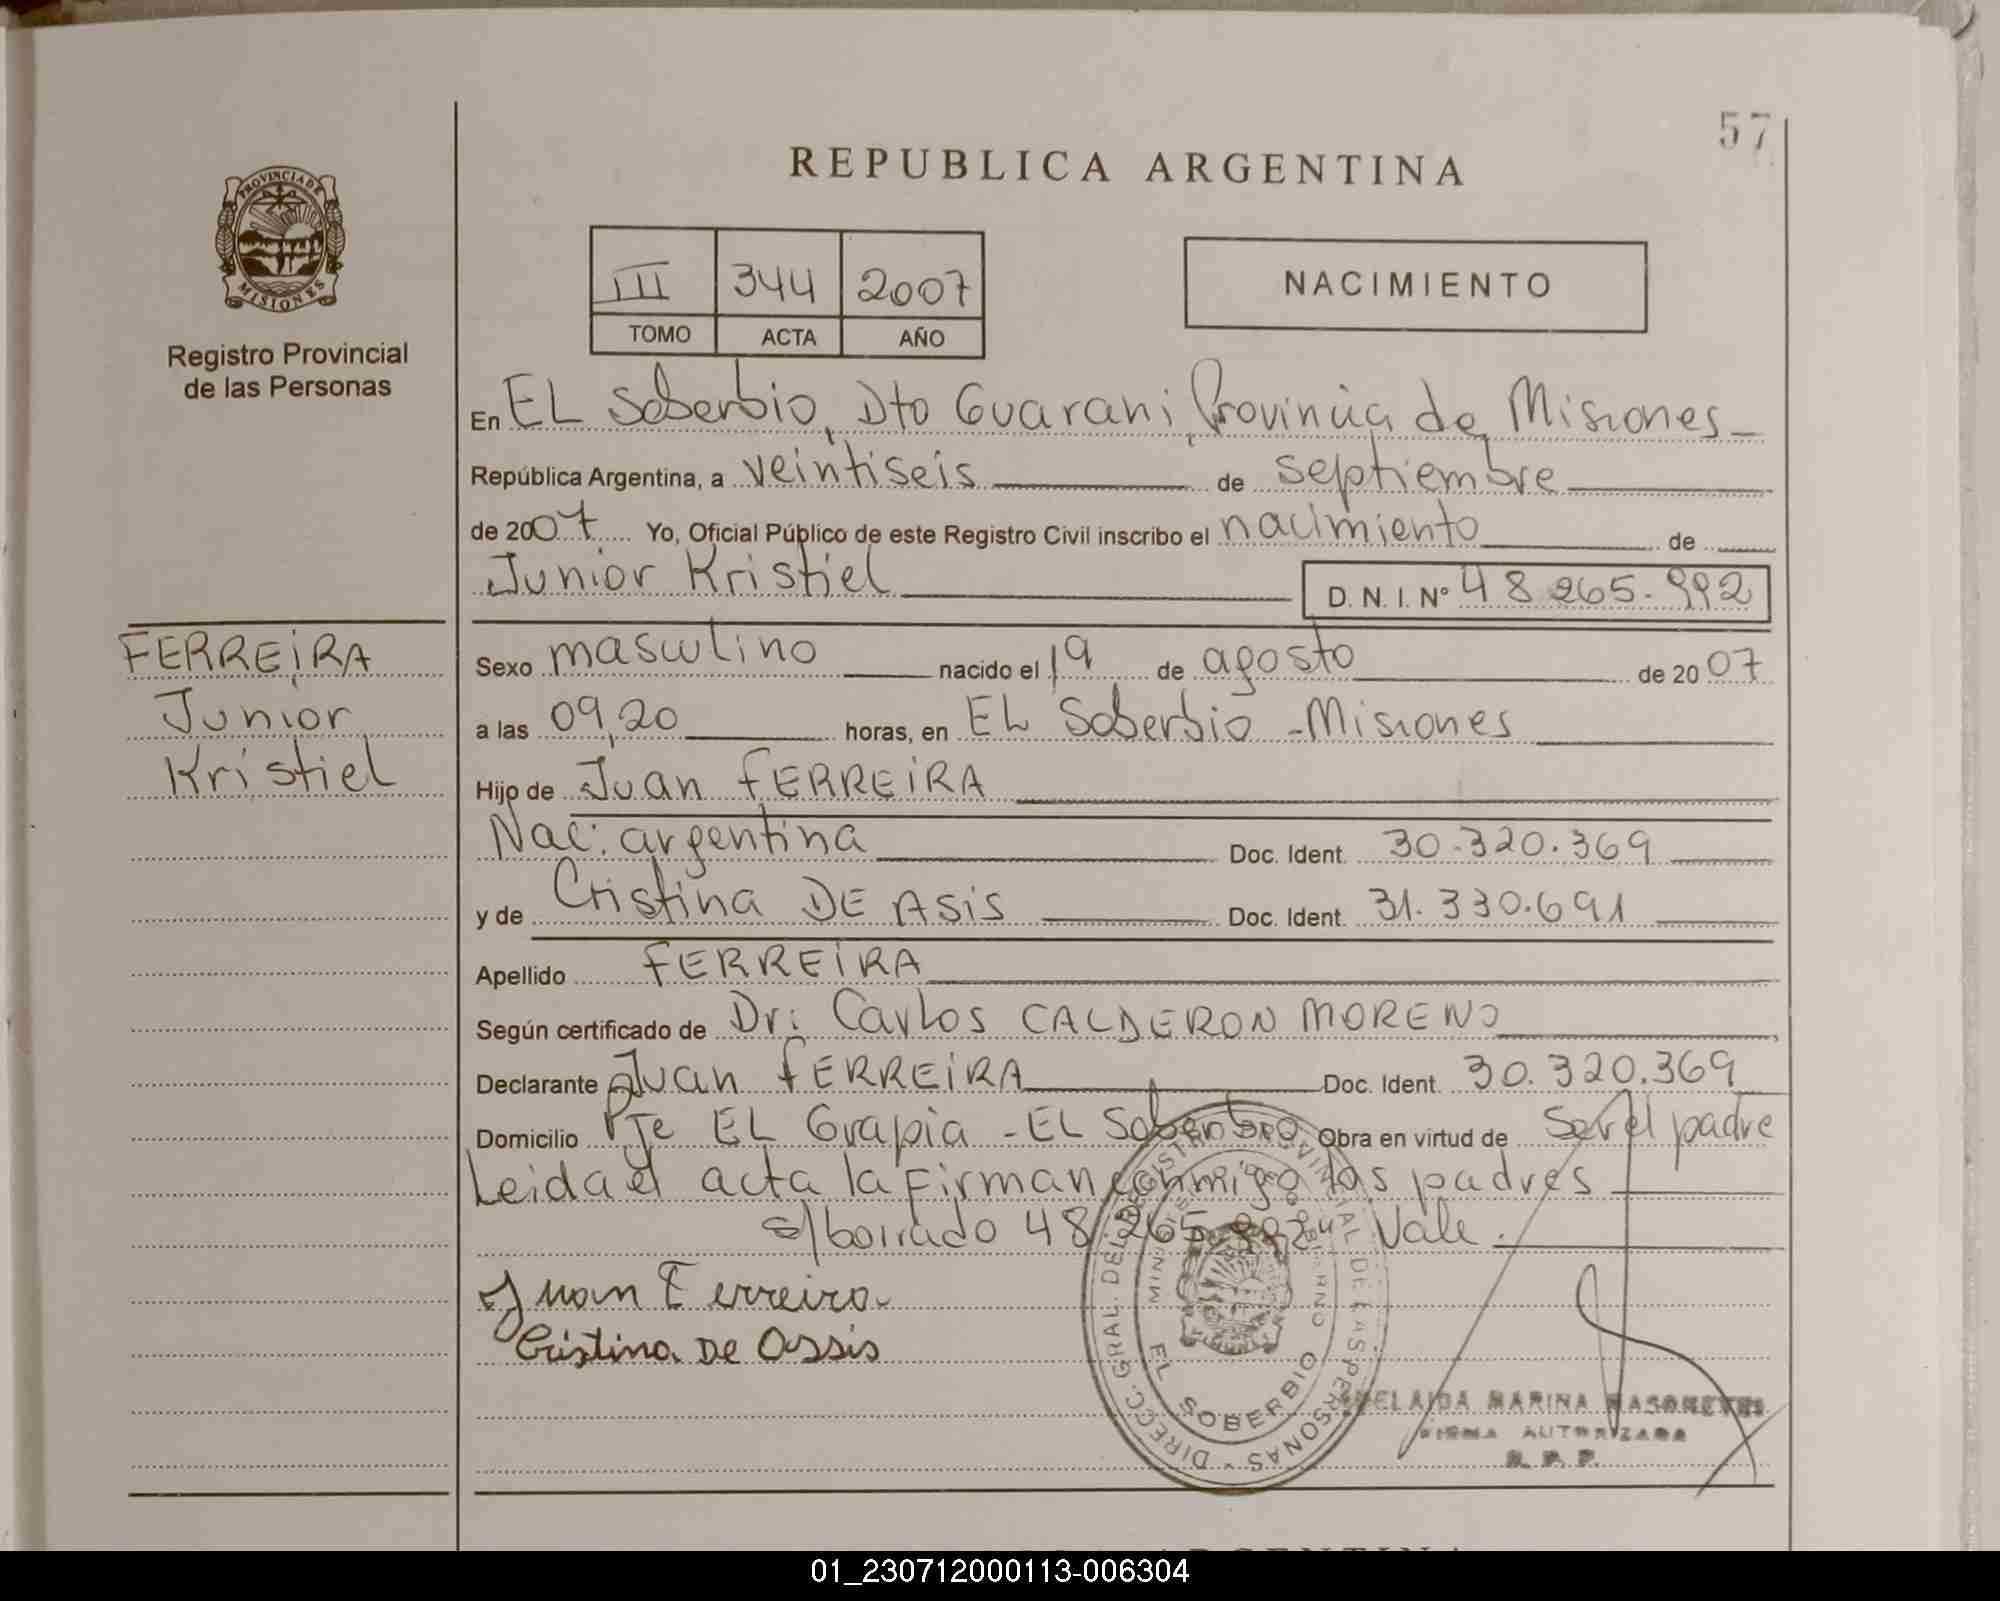 57
REPUBLICA ARGENTINA
PROVINCIA DE
MISIONES
Registro Provincial
de las Personas
III 344 2007
TOMO ACTA AÑO
NACIMIENTO
En EL Soberbio, Dto Guarani, Provincia de Misiones
República Argentina, a veintiseis de septiembre
de 2007 Yo, Oficial Público de este Registro Civil inscribo el nacimiento de
Junior Kristiel D. N. I. Nº 48 265.992
FERREIRA
Junior
Kristiel
Sexo masculino nacido el 19 de agosto de 2007
a las 09,20 horas, en EL Soberbio - Misiones
Hijo de Juan FERREIRA
Nac: argentina Doc. Ident. 30.320.369
y de Cristina DE ASIS Doc. Ident. 31.330.691
Apellido FERREIRA
Según certificado de Dr: Carlos CALDERON MORENO
Declarante Juan FERREIRA Doc. Ident. 30.320.369
Domicilio Pje EL Grapia - EL Soberbio Obra en virtud de Ser el padre
Leida el acta la firman conmigo los padres
s/borrado 48.265.992" Vale.
Juan Ferreira
Cristina De Assis
DIRECC. GRAL. DEL REGISTRO PROVINCIAL DE LAS PERSONAS
EL SOBERBIO
MARINA
FIRMA AUTORIZADA
R. P. P.
ARGENTINA
01_230712000113-006304